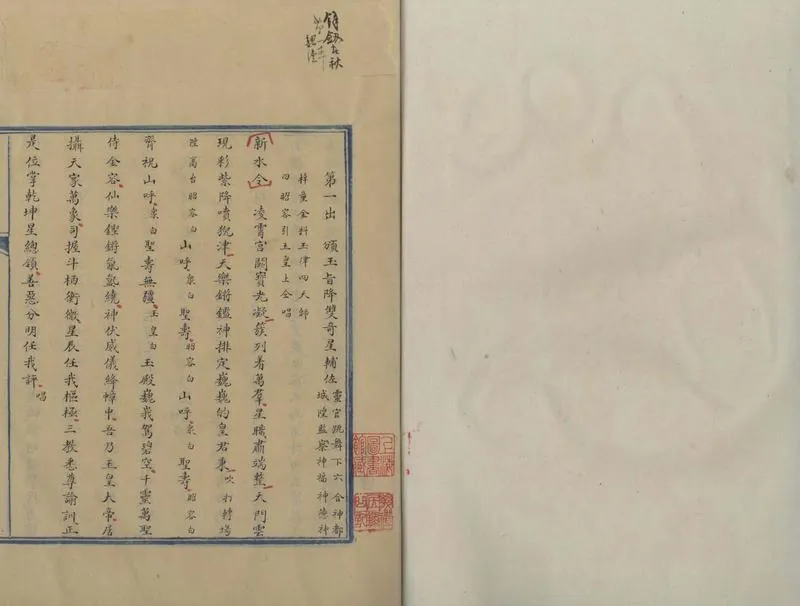 第一出　頒玉旨降雙奇星輔佐
靈官跳舞下六合神都
城隍監察神福神德神
梓童金科玉律四天師
四昭容引玉皇上仝唱
新水令　凌霄宮闕寶光凝簇列着萬羣星職肅端整天門雲
現彩紫降噴猊津天樂鏘鑑神排定巍巍的皇君秉吹打轉場
陞高台昭容白山呼衆白聖壽昭容白山呼衆白聖壽昭容白
齊祝山呼衆白聖壽無疆玉皇白玉殿巍峩駕碧空千靈萬聖
侍金容仙樂鏗鏘氤氳繞神伏威儀絳幃中吾乃玉皇大帝居
攝天家萬象司握斗柄衡徽星辰任我樞極三教悉尊諭訓正
是位掌乾坤星總領善惡分明任我評唱